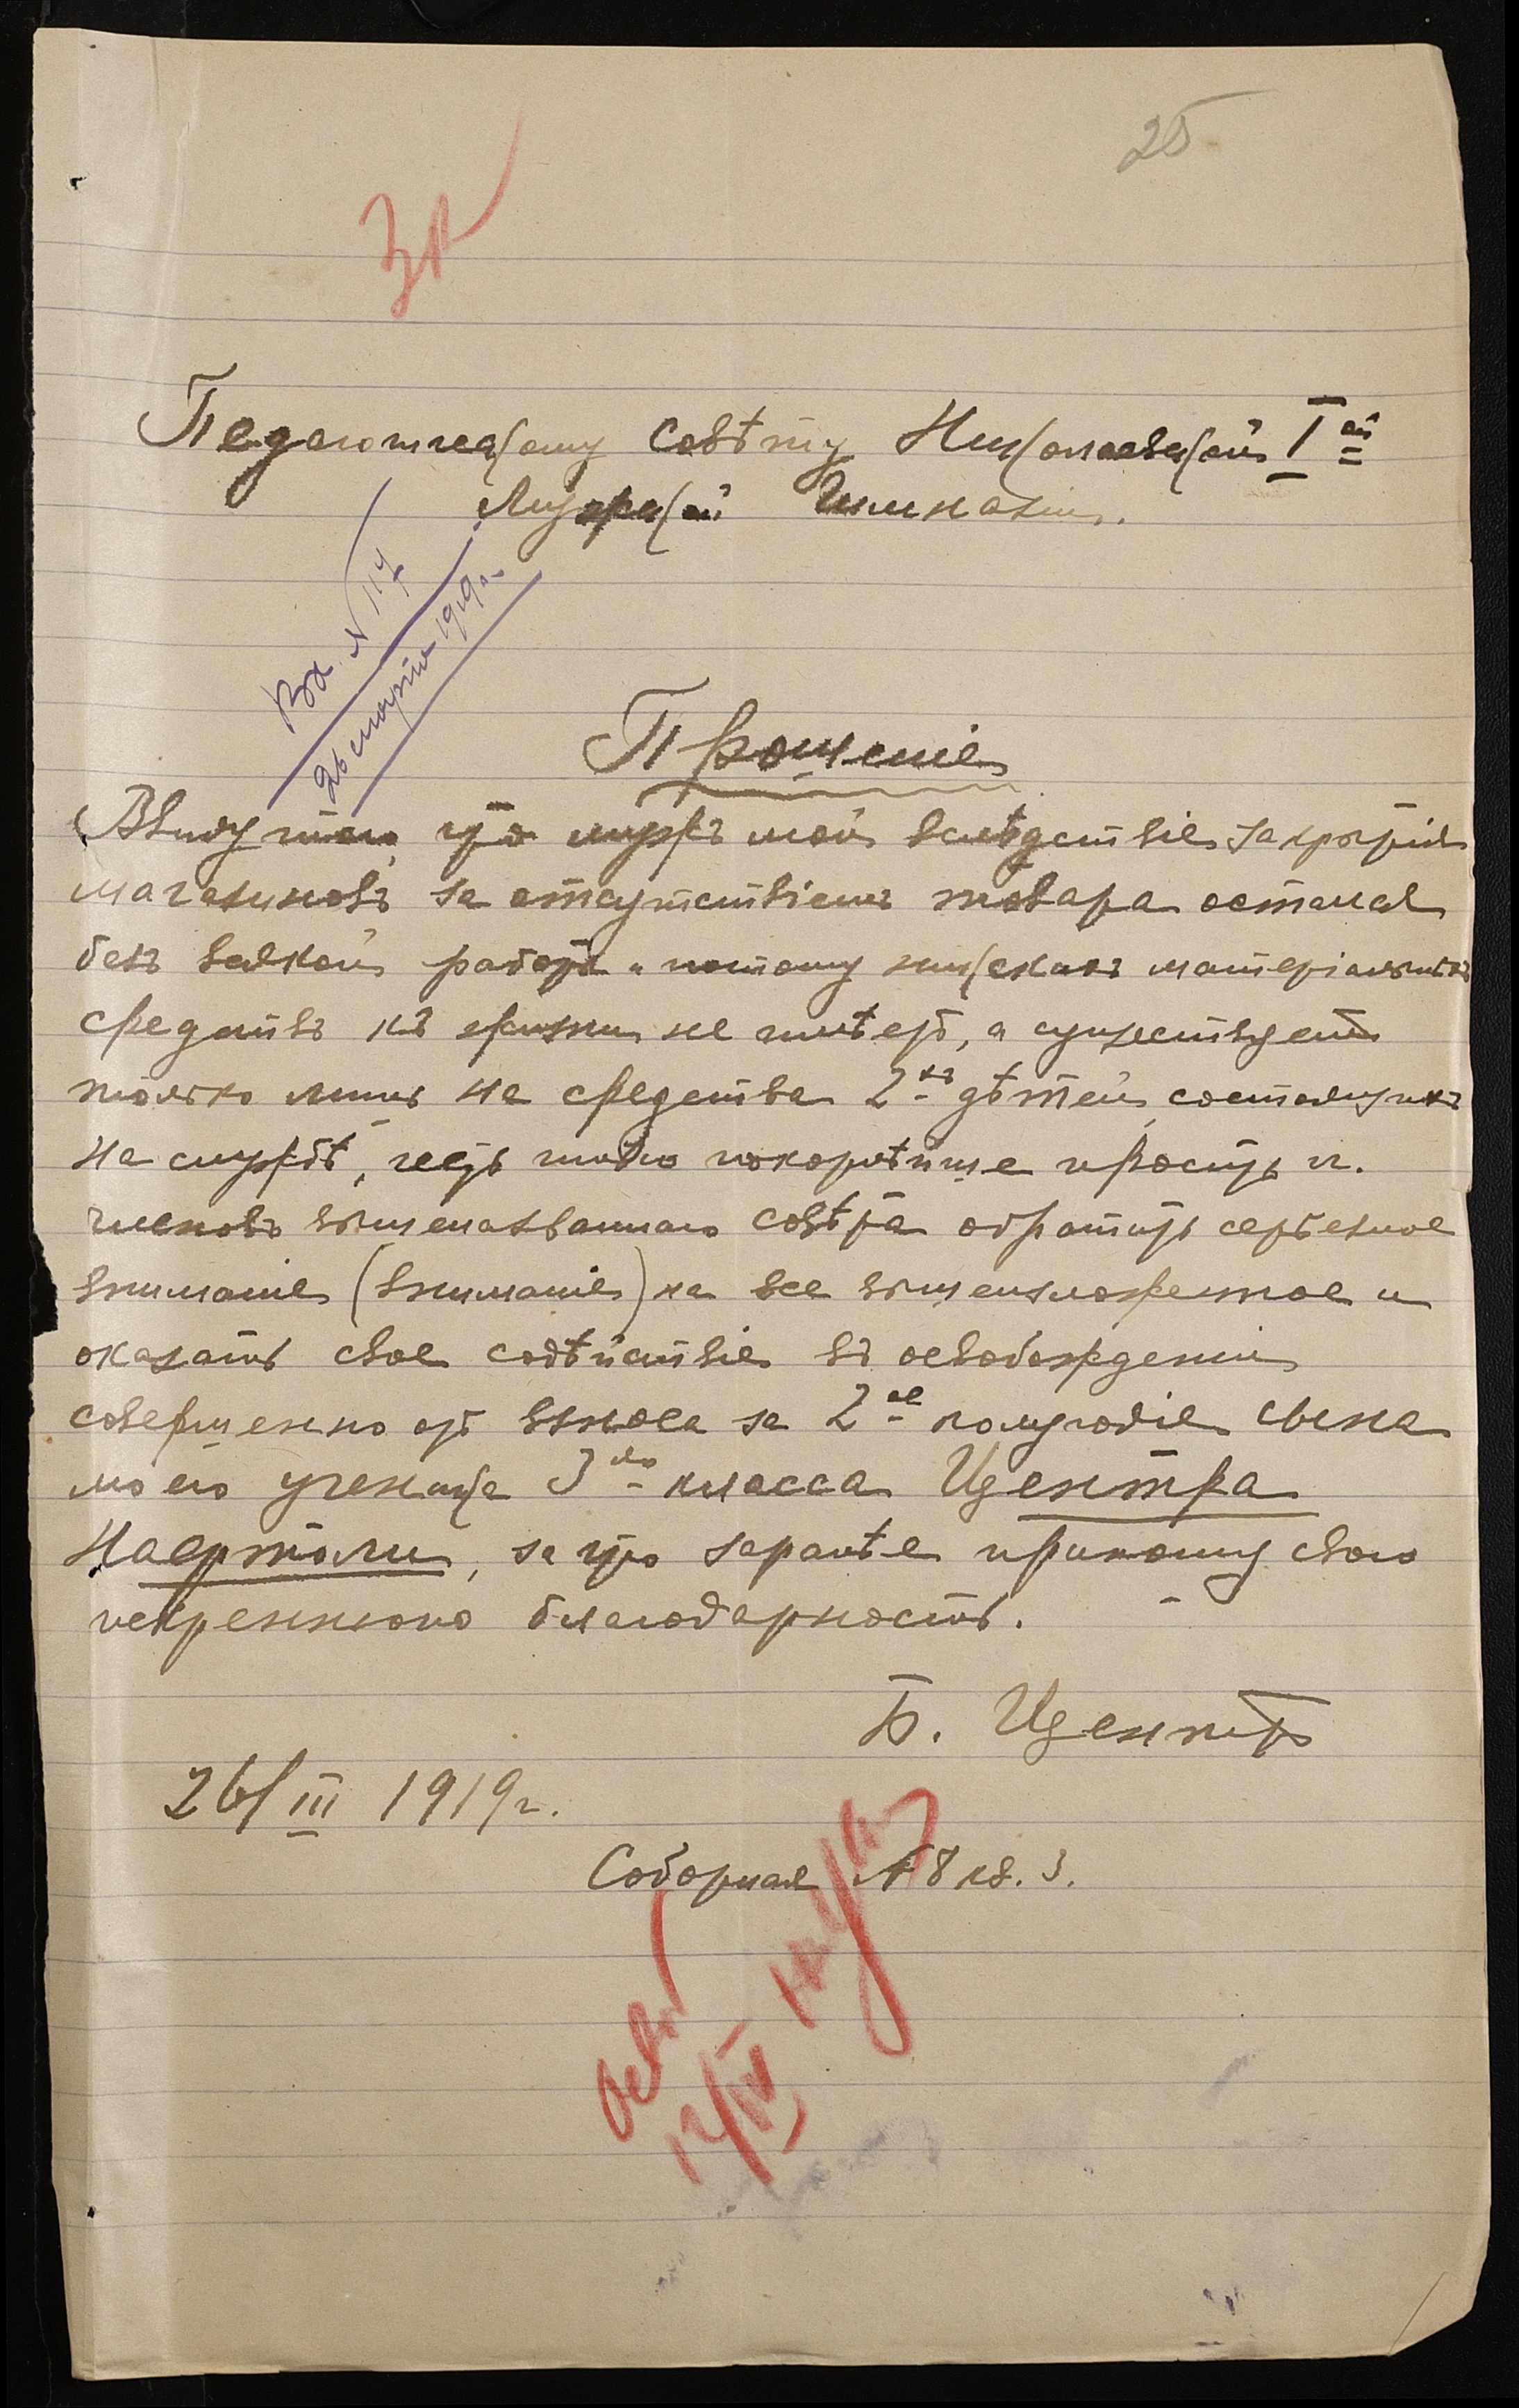 25
3 к
Педагогическому Совѣту Николаевской I ой
Мужской Гимназіи.
Вх. № 117
26 марта 1919 г.
Прошеніе
Ввиду того, что мужъ мой вслѣдствіе закрытія
магазиновъ за отсутствіемъ товара остался
безъ всякой работы и потому никакихъ матеріальныхъ
средствъ къ жизни не имѣетъ, а существуетъ
только лишь на средства 2-хъ дѣтей, состоящихъ
на службѣ, честь имѣю покорнѣйше просить г.
членовъ вышеназваннаго Совѣта обратить серьезное
вниманіе (вниманіе) на все вышеизложенное и
оказать свое содѣйствіе въ освобожденіи
совершенно отъ взноса за 2-ое полугодіе сына
моего ученика 3-го класса Центра
Нафтоли, за что заранѣе приношу свою
искреннюю благодарность.
Б. Центръ
26/III 1919 г.
Соборная № 8 кв. 3.
Осв.
12/IV